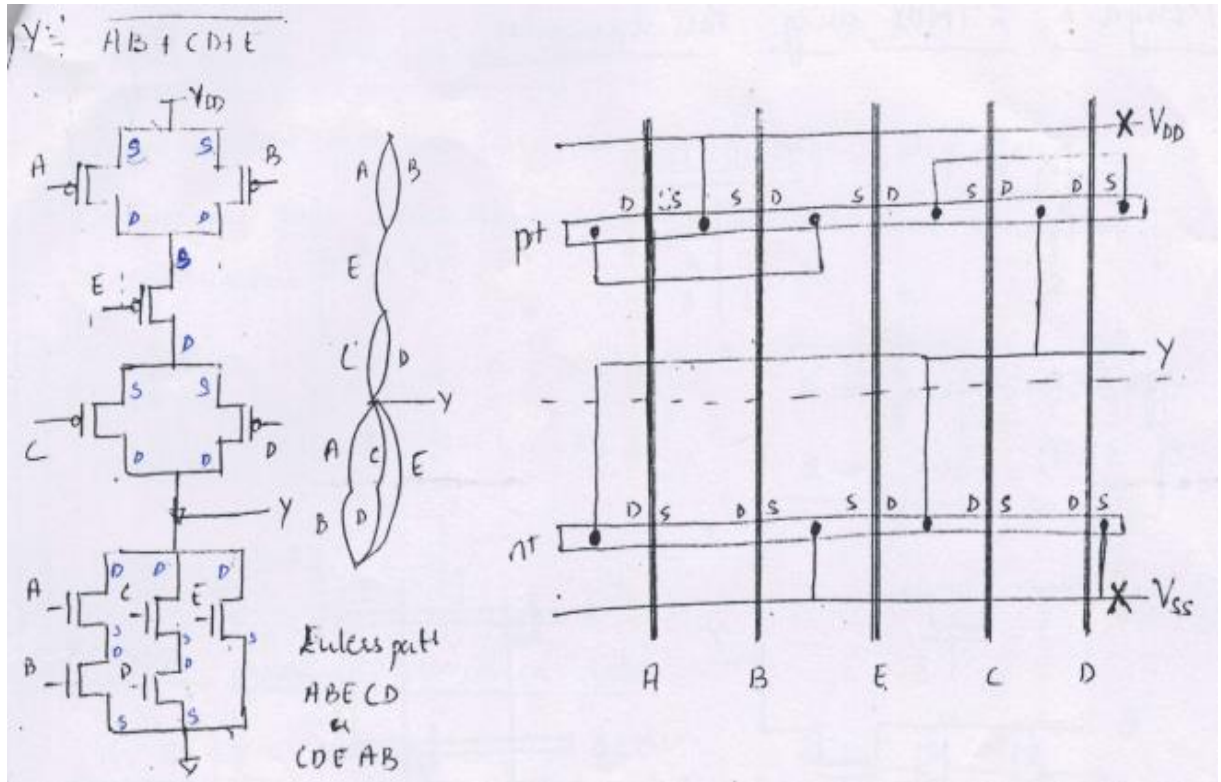 Y = AB + CD + E
VDD
S S
A B
D D
S
E
D
S S
C D
D D
Y
D D D
A C E
S S S
D D
B D
S S
A B
E
C D
Y
A C E
B D
Eulers path
ABECD
or
CDEAB
VDD
D S S D S D S D D S
p+
Y
D S D S S D D S D S
n+
VSS
A B E C D